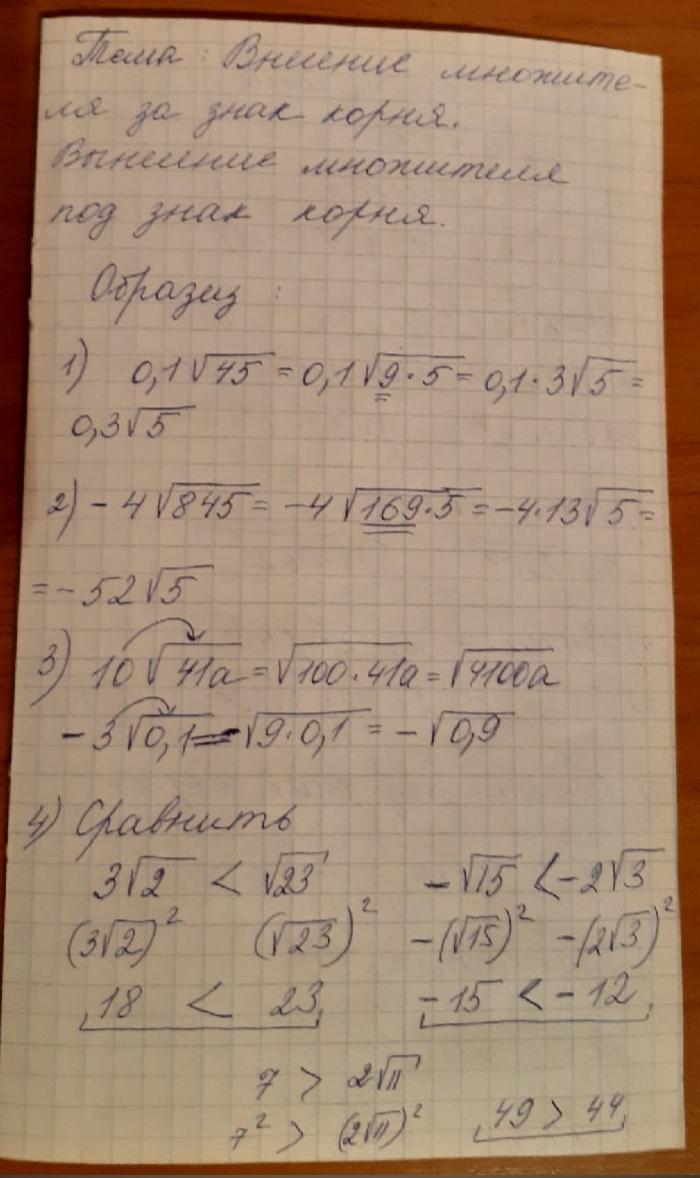 Тема: Внесение множите-
ля за знак корня.
Вынесение множителя
под знак корня.
Образец:
1) 0,1√45 = 0,1√9·5 = 0,1·3√5 =
0,3√5
2) -4√845 = -4√169·5 = -4·13√5 =
= -52√5
3) 10√41a = √100·41a = √4100a
-3√0,1 = -√9·0,1 = -√0,9
4) Сравнить
3√2 < √23 -√15 < -2√3
(3√2)² (√23)² -(√15)² -(2√3)²
18 < 23 -15 < -12
7 > 2√11
7² > (2√11)² 49 > 44